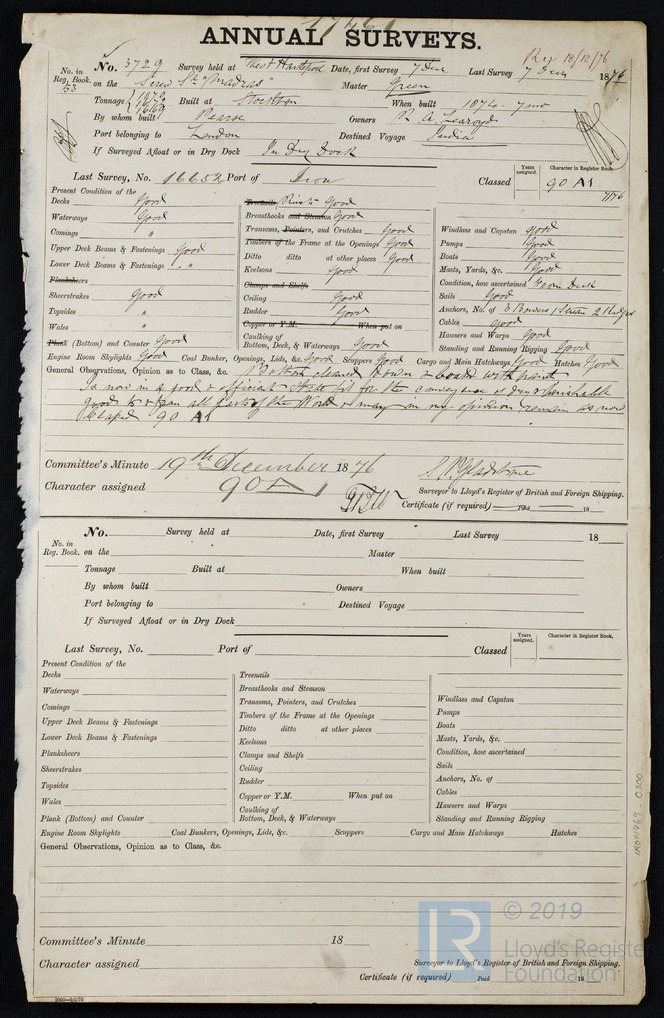 ANNUAL SURVEYS.
No. 3729 Survey held at West Hartlepool Date, first Survey 7 Dec Last Survey 7 Dec 1876
Rec 18/12/76
No. in Reg. Book. 53 on the Screw Str "Madras" Master Green
Tonnage Built at Stockton When built 1874 - 7mo
By whom built Pearse Owners R. A. Learoyd
Port belonging to London Destined Voyage India
If Surveyed Afloat or in Dry Dock In Dry Dock
Last Survey, No. 16652 Port of Iron Classed Years assigned. Character in Register Book. 90 A1
7/76
Present Condition of the
Decks Good
Waterways Good
Comings "
Upper Deck Beams & Fastenings Good
Lower Deck Beams & Fastenings "
Planksheers
Sheerstrakes Good
Topsides "
Wales "
Plank (Bottom) and Counter Good
Treenails, Rivets Good
Breasthooks and Stemson Good
Transoms, Pointers, and Crutches Good
Timbers of the Frame at the Openings Good
Ditto ditto at other places Good
Keelsons Good
Clamps and Shelfs
Ceiling Good
Rudder Good
Copper or Y.M. When put on
Caulking of
Bottom, Deck, & Waterways Good
Windlass and Capstan Good
Pumps Good
Boats Good
Masts, Yards, &c. Good
Condition, how ascertained From Deck
Sails Good
Anchors, No. of 3 Bowers 1 Stream 2 Kedges
Cables Good
Hawsers and Warps Good
Standing and Running Rigging Good
Engine Room Skylights Good Coal Bunker, Openings, Lids, &c. Good Scuppers Good Cargo and Main Hatchways Good Hatches Good
General Observations, Opinion as to Class, &c. Bottom cleaned down & coated with paint
Is now in a good & efficient state fit for the conveyance of dry & perishable
goods to & from all parts of the World & may in my opinion remain as now
Classed 90 A1
Committee's Minute 19th December 1876
Character assigned 90 A1
Surveyor to Lloyd's Register of British and Foreign Shipping.
Certificate (if required) 18
No. Survey held at Date, first Survey Last Survey 18
No. in Reg. Book. on the Master
Tonnage Built at When built
By whom built Owners
Port belonging to Destined Voyage
If Surveyed Afloat or in Dry Dock
Last Survey, No. Port of Classed Years assigned. Character in Register Book.
Present Condition of the
Decks
Waterways
Comings
Upper Deck Beams & Fastenings
Lower Deck Beams & Fastenings
Planksheers
Sheerstrakes
Topsides
Wales
Plank (Bottom) and Counter
Treenails
Breasthooks and Stemson
Transoms, Pointers, and Crutches
Timbers of the Frame at the Openings
Ditto ditto at other places
Keelsons
Clamps and Shelfs
Ceiling
Rudder
Copper or Y.M. When put on
Caulking of
Bottom, Deck, & Waterways
Windlass and Capstan
Pumps
Boats
Masts, Yards, &c.
Condition, how ascertained
Sails
Anchors, No. of
Cables
Hawsers and Warps
Standing and Running Rigging
Engine Room Skylights Coal Bunkers, Openings, Lids, &c. Scuppers Cargo and Main Hatchways Hatches
General Observations, Opinion as to Class, &c.
IRON469-0300
Committee's Minute 18
Character assigned
Surveyor to Lloyd's Register of British and Foreign Shipping.
Certificate (if required) Paid 18
LR © 2019
Lloyd's Register
Foundation